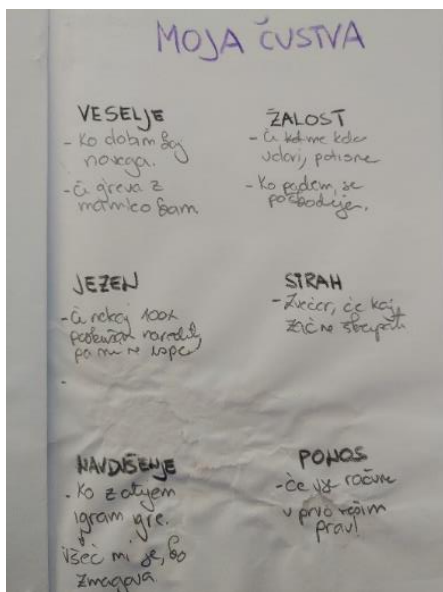 MOJA ČUSTVA
VESELJE
- Ko dobim kaj
novega.
- Če greva z
mamico sam
ŽALOST
- Če kdo me
udari, potisne
- Ko padem, se
poškodujem.
JEZEN
- Če nekaj 100x
poskušam narediti,
pa mi ne uspe,
-
STRAH
- Zvečer, če kaj
začne škripati
NAVDUŠENJE
- Ko z atijem
igram igre.
Všeč mi je, ko
zmagova.
PONOS
- če vse račune
v prvo rešim
prav!